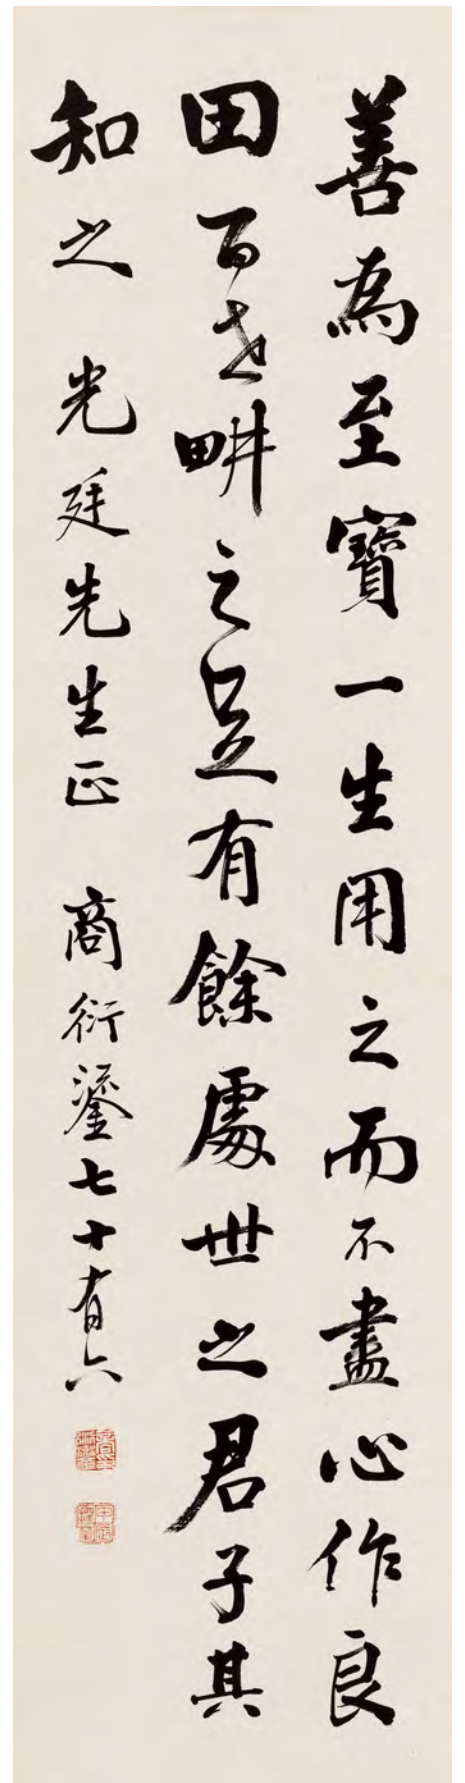 善為至寶一生用之而不盡心作良
田百世畊之足有餘處世之君子其
知之 光廷先生正 商衍鎏七十有六